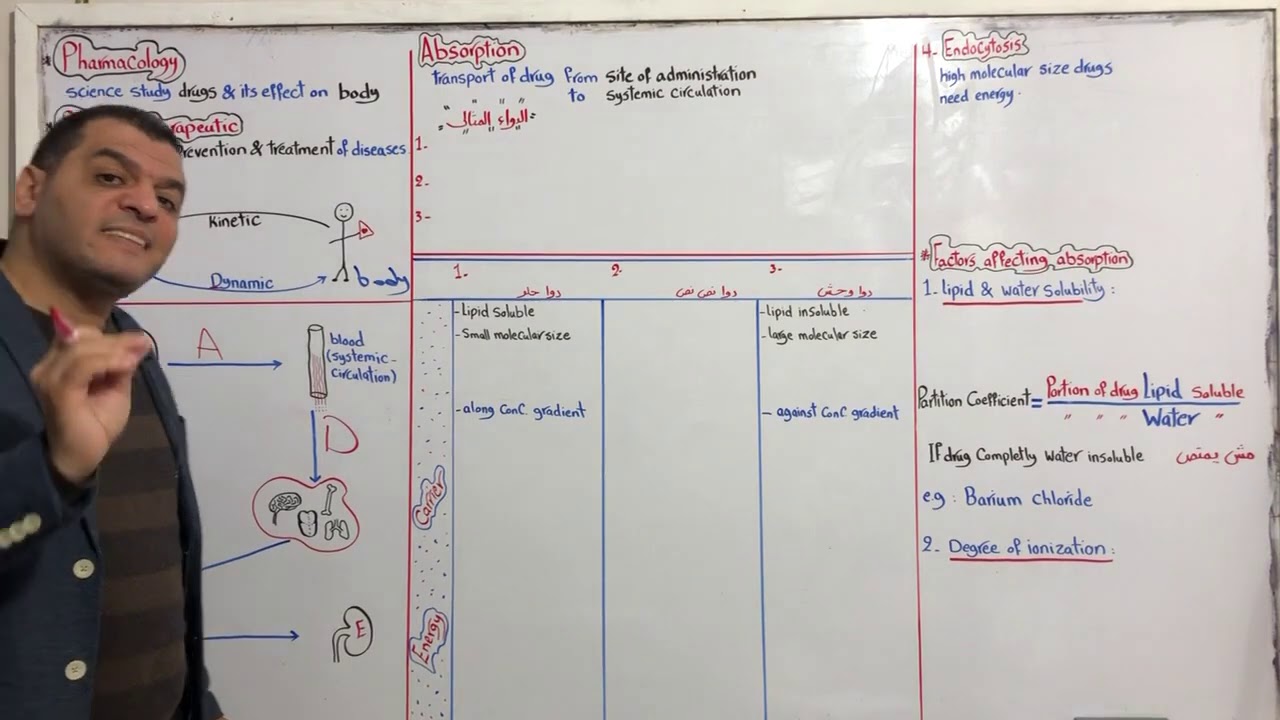 * Pharmacology
science study drugs & its effect on body
rapeutic
revention & treatment of diseases
Kinetic
Dynamic
body
A
blood
(systemic-
circulation)
D
E
Absorption
transport of drug from site of administration
" " " " to systemic circulation
"الدواء المثالى"
1.
2-
3-
1.
2.
3-
دوا حلو
دوا نص نص
دوا وحش
-Lipid Soluble
-Small molecular size
-along Conc. gradient
-lipid insoluble
-large molecular size
- against Conc gradient
Carrier
Energy
4- Endocytosis
high molecular size drugs
need energy.
* Factors affecting absorption
1. lipid & water solubility:
Partition Coefficient = Portion of drug Lipid Soluble
" " " Water "
If drug Completly water insoluble مش يمتص
e.g : Barium chloride
2- Degree of ionization: